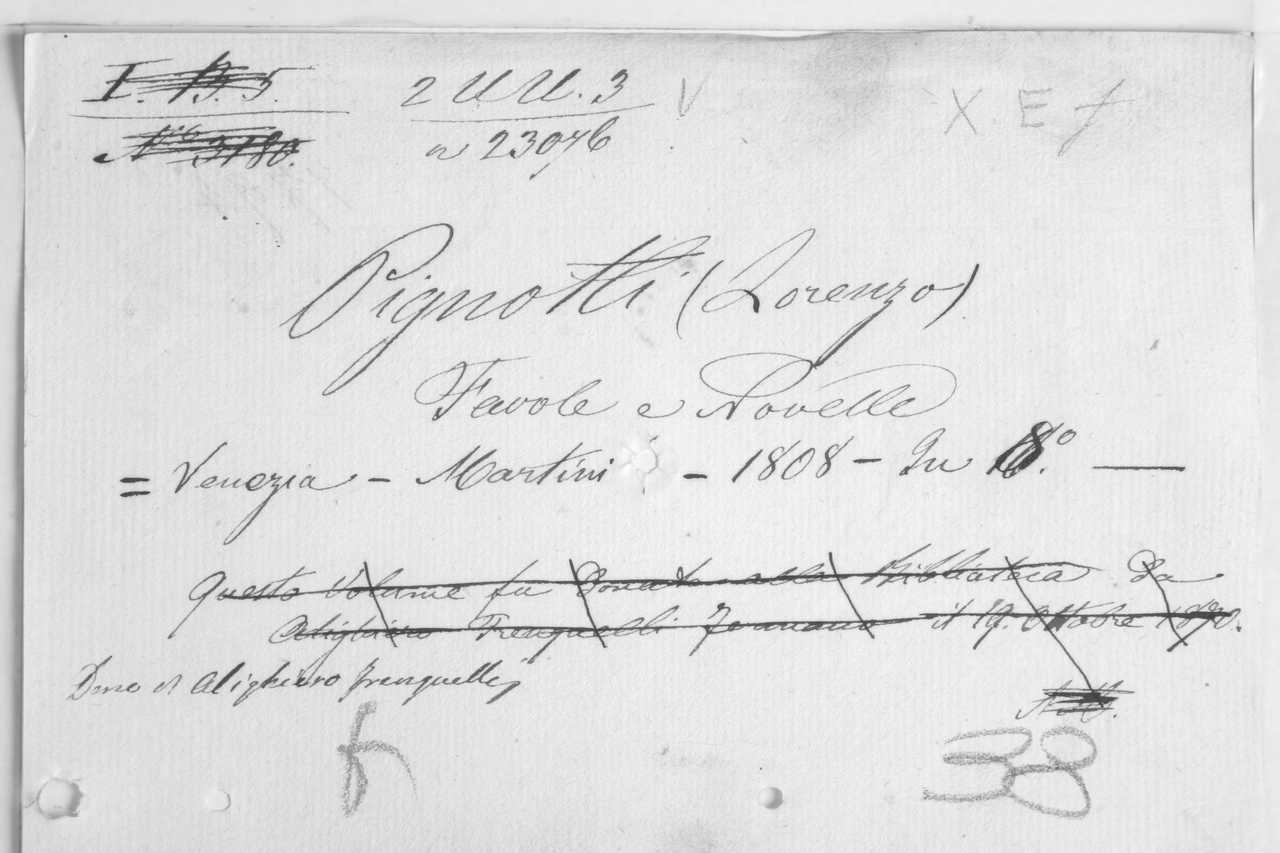 I. B. 5. 2 UU. 3 V X E f
N.º 3180. n 23076
Pignotti (Lorenzo)
Favole e Novelle
= Venezia - Martini - 1808 - In 8.º —
Questo Volume fu Donato alla Biblioteca Da
Alighiero Frenguelli Fermano il 19. Ottobre 1890.
Dono di Alighiero Frenguelli
38